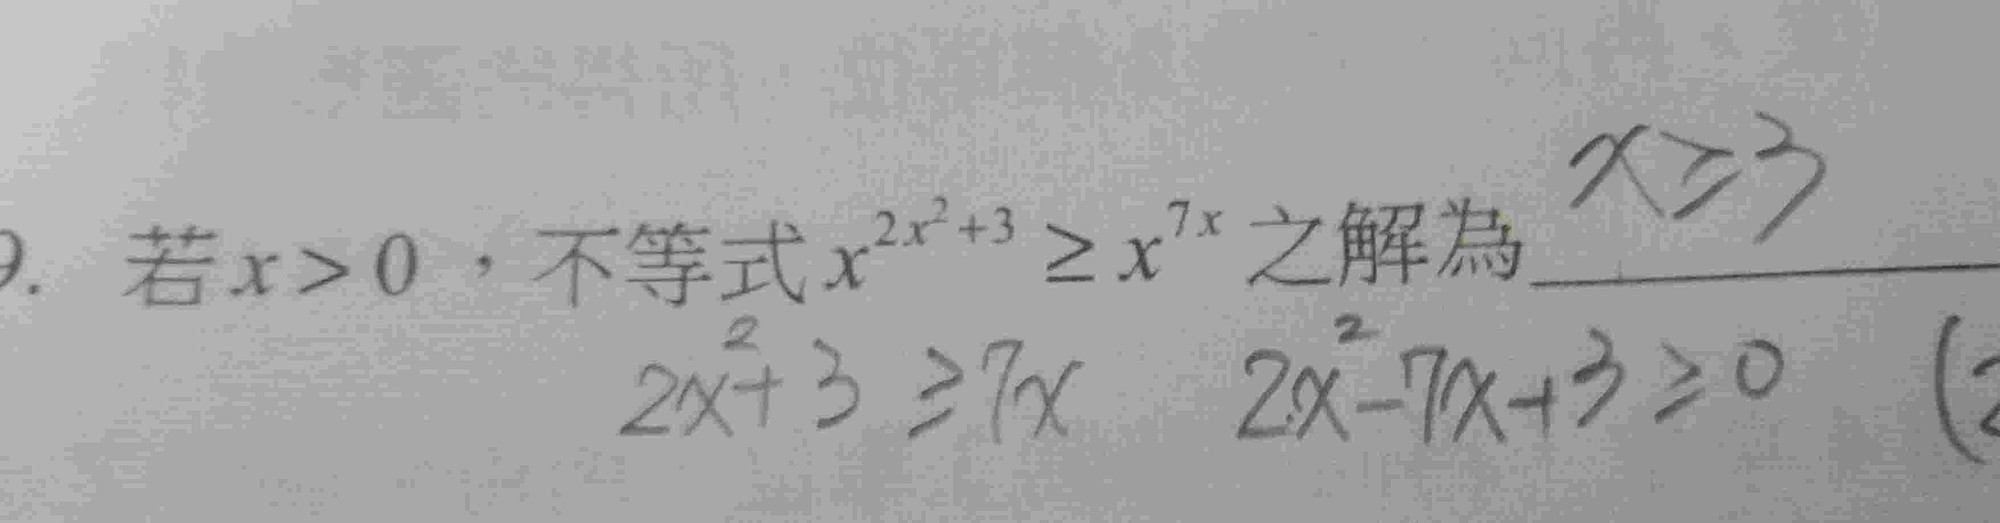 x≥3
9. 若x>0，不等式x^{2x^2+3} ≥ x^{7x}之解為
2x^2+3≥7x 2x^2-7x+3≥0 (2